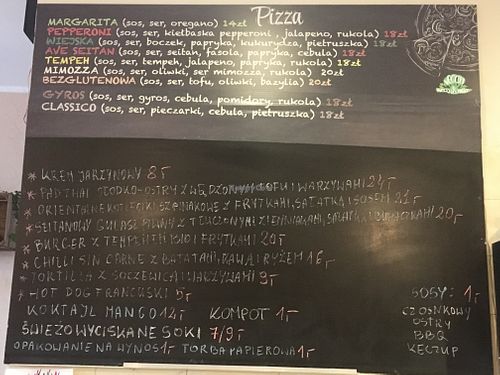 Pizza
MARGARITA (sos, ser, oregano) 14zł
PEPPERONI (sos, ser, kiełbaska pepperoni, jalapeno, rukola) 18zł
WIEJSKA (sos, ser, boczek, papryka, kukurydza, pietruszka) 18zł
AVE SEITAN (sos, ser, seitan, fasola, papryka, cebula) 18zł
TEMPEH (sos, ser, tempeh, jalapeno, papryka, rukola) 18zł
MIMOZZA (sos, ser, oliwki, ser mimozza, rukola) 20zł
BEZGLUTENOWA (sos, ser, tofu, oliwki, bazylia) 20zł
GYROS (sos, ser, gyros, cebula, pomidory, rukola) 18zł
CLASSICO (sos, ser, pieczarki, cebula, pietruszka) 18zł
* KREM JARZYNOWY 8,-
* PAD THAI SŁODKO-OSTRY Z WĘDZONYM TOFU I WARZYWAMI 24,-
* ORIENTALNE KOTLECIKI SZPINAKOWE Z FRYTKAMI, SAŁATKĄ I SOSEM 21,-
* SEITANOWY GULASZ PIWNY Z TŁUCZONYMI ZIEMNIAKAMI, SAŁATKĄ 20,-
* BURGER Z TEMPEHEM BIO I FRYTKAMI 20,-
* CHILLI SIN CARNE Z BATATAMI, KAWĄ I RYŻEM 16,-
* TORTILLA Z SOCZEWICĄ I WARZYWAMI 9,-
* HOT DOG FRANCUSKI 5,-
KOKTAJL MANGO 12,- KOMPOT 1,-
ŚWIEŻO WYCISKANE SOKI 7/9,-
OPAKOWANIE NA WYNOS 1,- TORBA PAPIEROWA 1,-
SOSY: 1,-
CZOSNKOWY
OSTRY
BBQ
KECZUP